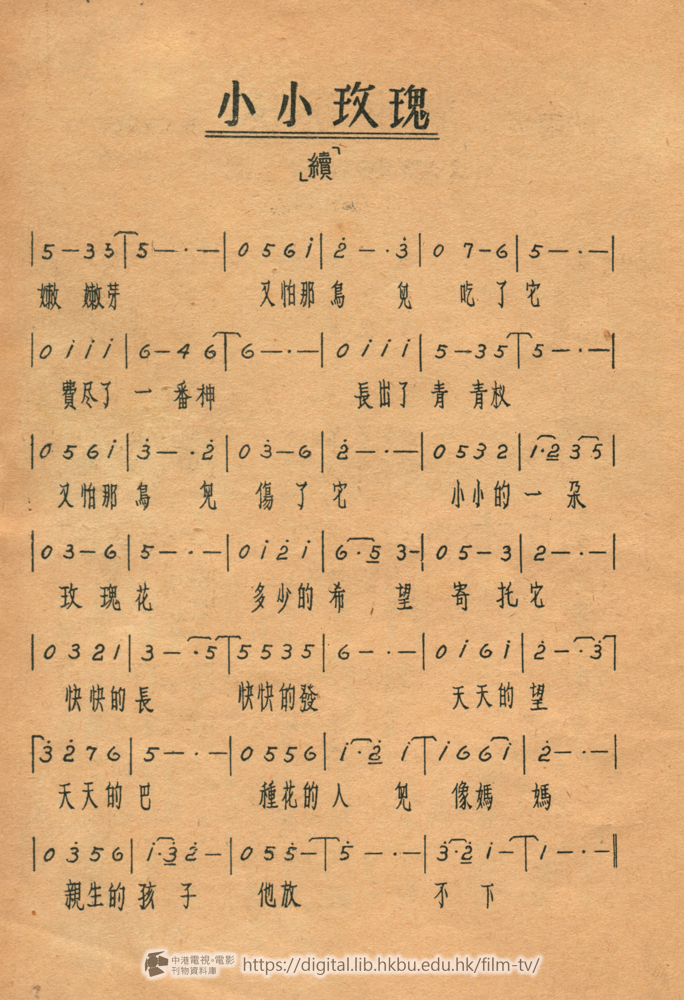 小小玫瑰
「續」
|5—33|5—·—|056i̇|2̇—·3̇|07—6|5—·—|
嫩 嫩芽 又怕那鳥 兒 吃了它
|0i̇i̇i̇|6—46|6—·—|0i̇i̇i̇|5—35|5—·—|
費尽了一番神 長出了青青杈
|056i̇|3̇—·2̇|03̇—6|2̇—·—|0532|1·235|
又怕那鳥 兒 傷了它 小小的一朵
|03—6|5—·—|0i̇2̇i̇|6·53—|05—3|2—·—|
玫瑰花 多少的希 望 寄托它
|0321|3—·5|5535|6—·—|0i̇6i̇|2̇—·3̇|
快快的長 快快的發 天天的望
|3̇2̇76|5—·—|0556|i̇·2̇i̇|i̇66i̇|2̇—·—|
天天的巴 種花的人 兒 像媽 媽
|03̇56|i̇·3̇2̇—|055—|5—·—|3̇·2̇i—|1—·—||
親生的孩子 他放 不下
中港電視·電影
刊物資料庫
https://digital.lib.hkbu.edu.hk/film-tv/